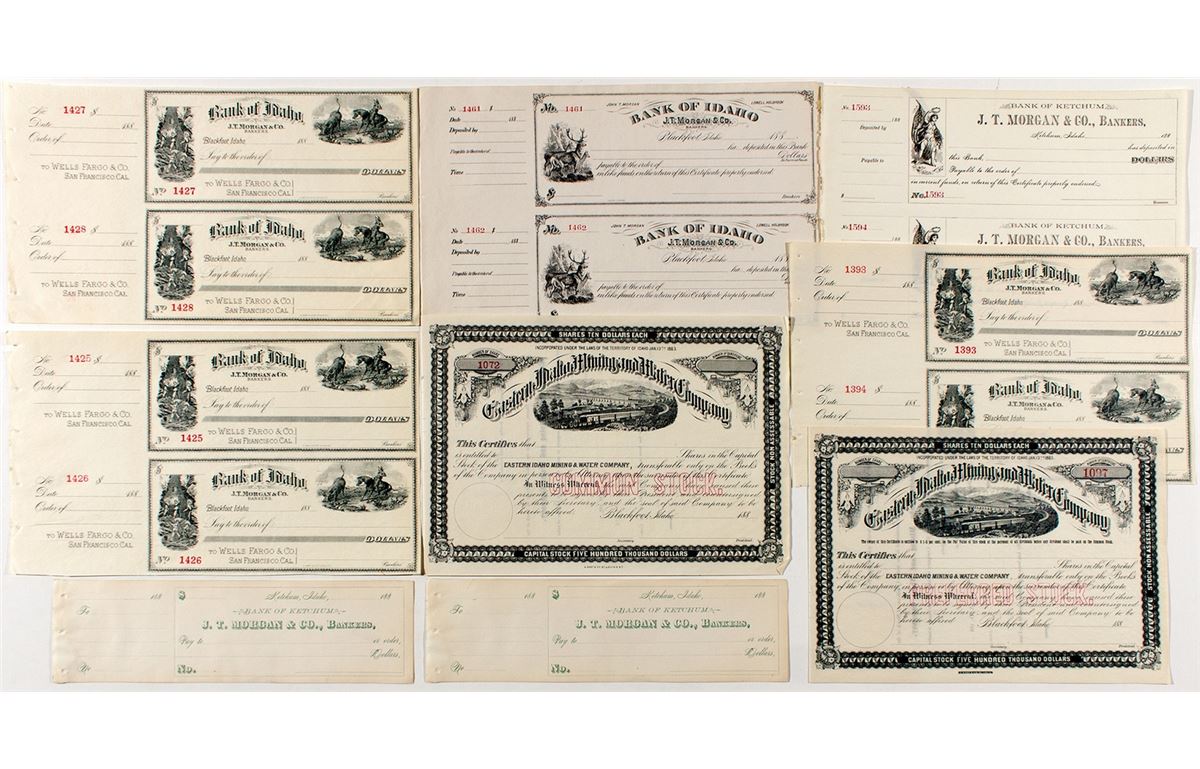 No 1427 $
Date 188
Order of
TO WELLS FARGO & CO.
SAN FRANCISCO. CAL
$
Bank of Idaho,
J.T. MORGAN & CO.
BANKERS
Blackfoot, Idaho 188
Pay to the order of
DOLLARS
TO WELLS FARGO & CO.
SAN FRANCISCO. CAL.
No 1427
Bankers
No 1428 $
Date 188
Order of
TO WELLS FARGO & CO.
SAN FRANCISCO. CAL
$
Bank of Idaho,
J.T. MORGAN & CO.
BANKERS
Blackfoot, Idaho 188
Pay to the order of
DOLLARS
TO WELLS FARGO & CO.
SAN FRANCISCO. CAL.
No 1428
Bankers
No 1461 $
Date 188
Deposited by
Payable to the order of
Time
No. 1461
JOHN T. MORGAN
LOWELL HOLBROOK
BANK OF IDAHO
J.T. MORGAN & CO.
BANKERS
Blackfoot, Idaho 188
has deposited in this Bank
Dollars
payable to the order of
in like funds on the return of this Certificate properly endorsed
$
Bankers
No 1462 $
Date 188
Deposited by
Payable to the order of
Time
No. 1462
JOHN T. MORGAN
LOWELL HOLBROOK
BANK OF IDAHO
J.T. MORGAN & CO.
BANKERS
Blackfoot, Idaho 188
has deposited in this
payable to the order of
in like funds on the return of this Certificate properly endorsed
$
No. 1593
188
Deposited by
Payable to
$
BANK OF KETCHUM,
J. T. MORGAN & CO., BANKERS,
Ketchum, Idaho, 188
has deposited in
this Bank, DOLLARS
Payable to the order of
in current funds, on return of this Certificate properly endorsed.
No. 1593
Bankers
No. 1594
188
BANK OF KETCHUM,
J. T. MORGAN & CO., BANKERS,
No 1393 $
Date 188
Order of
TO WELLS FARGO & CO.
SAN FRANCISCO. CAL
$
Bank of Idaho,
J.T. MORGAN & CO.
BANKERS
Blackfoot, Idaho 188
Pay to the order of
DOLLARS
TO WELLS FARGO & CO.
SAN FRANCISCO. CAL.
No 1393
Bankers
No 1394 $
Date 188
Order of
$
Bank of Idaho,
J.T. MORGAN & CO.
BANKERS
Blackfoot, Idaho 188
No 1425 $
Date 188
Order of
TO WELLS FARGO & CO.
SAN FRANCISCO. CAL
$
Bank of Idaho,
J.T. MORGAN & CO.
BANKERS
Blackfoot, Idaho 188
Pay to the order of
DOLLARS
TO WELLS FARGO & CO.
SAN FRANCISCO. CAL.
No 1425
Bankers
No 1426 $
Date 188
Order of
TO WELLS FARGO & CO.
SAN FRANCISCO. CAL
$
Bank of Idaho,
J.T. MORGAN & CO.
BANKERS
Blackfoot, Idaho 188
Pay to the order of
DOLLARS
TO WELLS FARGO & CO.
SAN FRANCISCO. CAL.
No 1426
Bankers
SHARES TEN DOLLARS EACH
INCORPORATED UNDER THE LAWS OF THE TERRITORY OF IDAHO JAN.
1072
Eastern Idaho Mining and Water Company
STOCK NON ASSESSABLE
This Certifies that
is entitled to Shares in the Capital
Stock of the EASTERN IDAHO MINING & WATER COMPANY, transferable only on the Books
COMMON STOCK.
In Witness Whereof,
here to affixed Blackfoot, Idaho 188
Secretary President
CAPITAL STOCK FIVE HUNDRED THOUSAND DOLLARS
SHARES TEN DOLLARS EACH
INCORPORATED UNDER THE LAWS OF THE TERRITORY OF IDAHO JAN.
1027
Eastern Idaho Mining and Water Company
STOCK NON ASSESSABLE
This Certifies that
is entitled to Shares in the Capital
Stock of the EASTERN IDAHO MINING & WATER COMPANY, transferable only on the Books
PREFERRED STOCK.
In Witness Whereof,
here to affixed Blackfoot, Idaho 188
Secretary President
CAPITAL STOCK FIVE HUNDRED THOUSAND DOLLARS
188
To
No
$ Ketchum, Idaho, 188
BANK OF KETCHUM
J. T. MORGAN & CO., BANKERS,
Pay to or order,
Dollars,
No.
188
To
No
$ Ketchum, Idaho, 188
BANK OF KETCHUM
J. T. MORGAN & CO., BANKERS,
Pay to or order,
Dollars,
No.